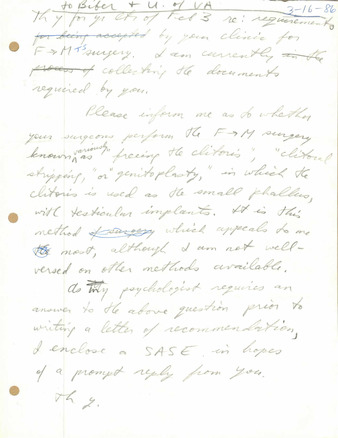 to Biber & U. of VA
3-16-86
Thy for yr ltr of Feb 3 re: requirements
for being accepted by your clinic for
F→M TS surgery. I am currently in the
process of collecting the documents
required by you.
Please inform me as to whether
your surgeons perform the F→M surgery
known variously as "freeing the clitoris", "clitoral
stripping," or "genitoplasty," in which the
clitoris is used as the small phallus,
with testicular implants. It is this
method of surgery which appeals to me
the most, although I am not well-
versed on other methods available.
As my psychologist requires an
answer to the above question prior to
writing a letter of recommendation,
I enclose a SASE in hopes
of a prompt reply from you.
Th y.